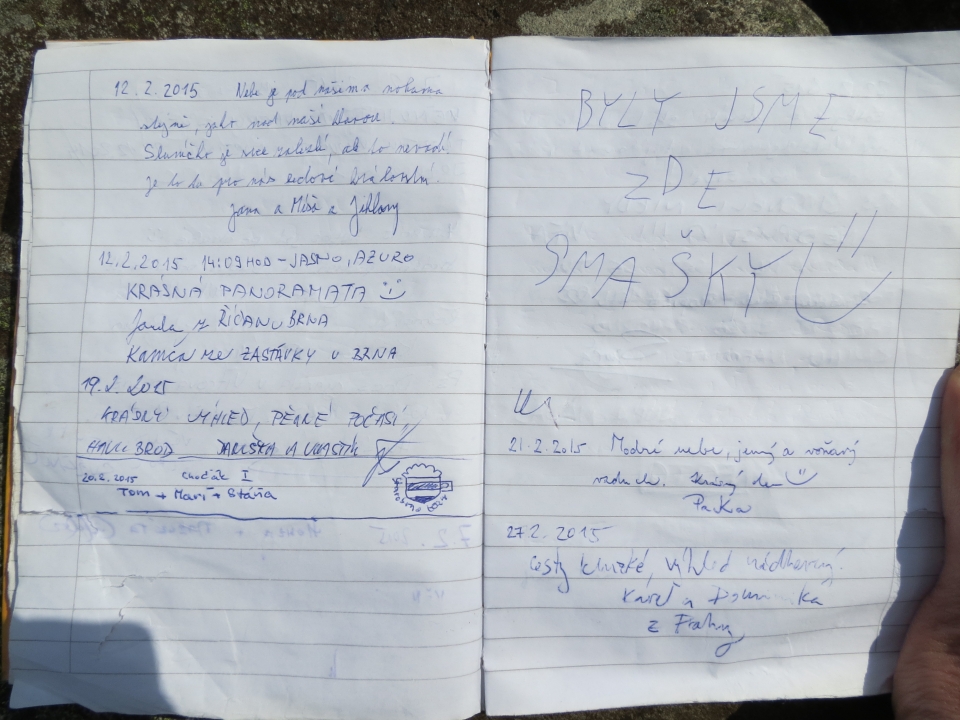 12.2.2015 Nebe je pod našima nohama
stejně, jako nad naší hlavou.
Sluníčko je sice zalezlé, ale to nevadí!
Je to tu pro nás ledové království.
Jana a Míša z Jihlavy
12.2.2015 14:09 HOD - JASNO, AZURO
KRÁSNÁ PANORAMATA
Jarda z ŘÍČAN U BRNA
Kamča ze ZASTÁVKY U BRNA
19.2.2015
KRÁSNÝ VÝHLED, PĚKNÉ POČASÍ,
HAVL. BROD JARUŠKA A VLASTÍK
20.2.2015 Chočák I
Tom + Mari + Stáňa
BYLY JSME
ZDE
SMAŠKY
21.2.2015 Modré nebe, jemný a voňavý
vzduch. Krásný den
27.2.2015
Cesty kluzké, výhled nádherný.
Karel a
z Prahy